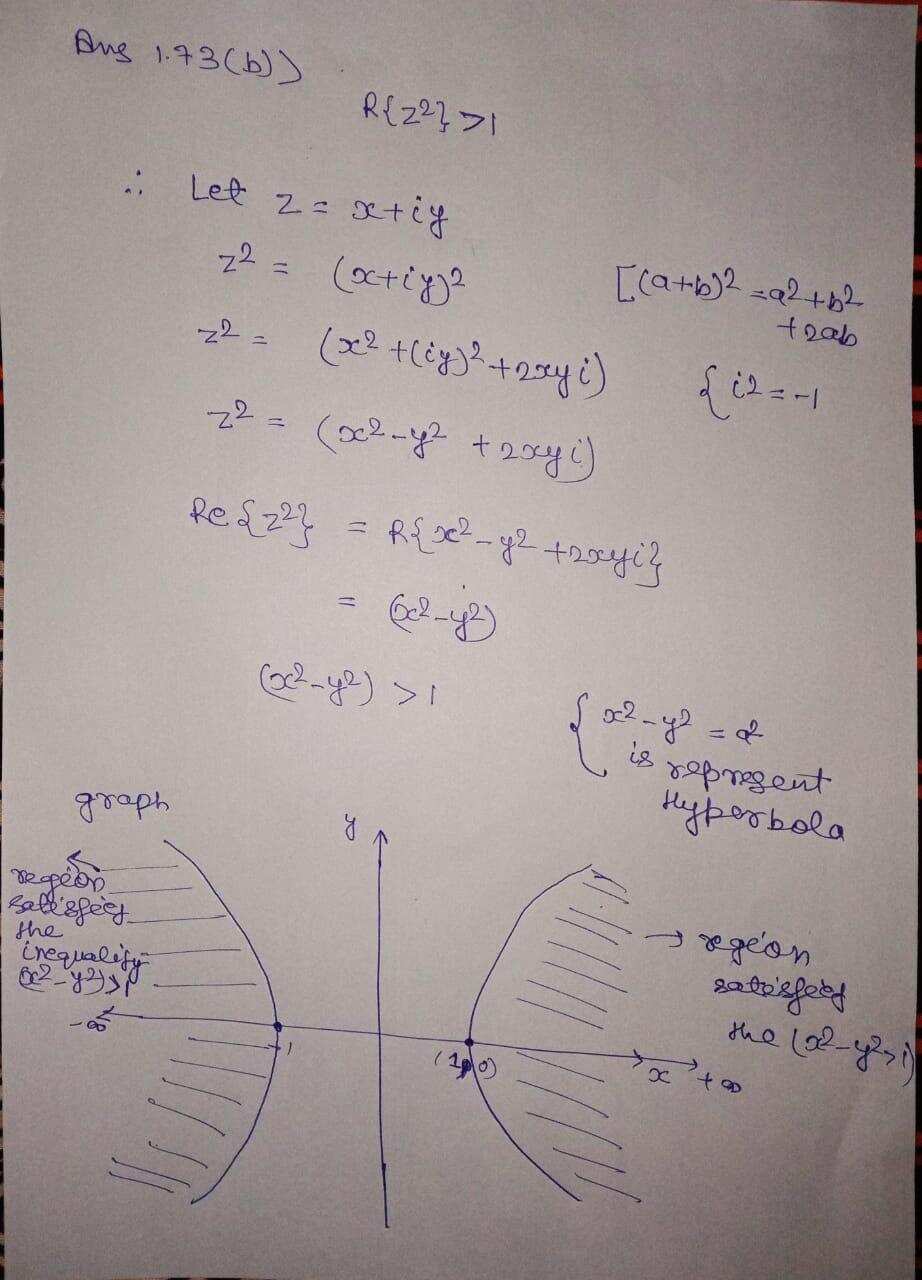 Ans 1.73(b))
R{z²} > 1
∴ Let z = x+iy
z² = (x+iy)² [(a+b)² = a²+b²
+2ab
z² = (x² +(iy)² +2xyi) { i² = -1
z² = (x² - y² +2xyi)
Re {z²} = R{x² - y² +2xyi}
= (x² - y²)
(x² - y²) > 1
{ x² - y² =
is represent
Hyperbola
graph
y
region
satisfies
the
inequality
(x² - y²) > 1
-∞
-1
(1, 0)
x
+∞
→ region
satisfies
the (x² - y² > 1)